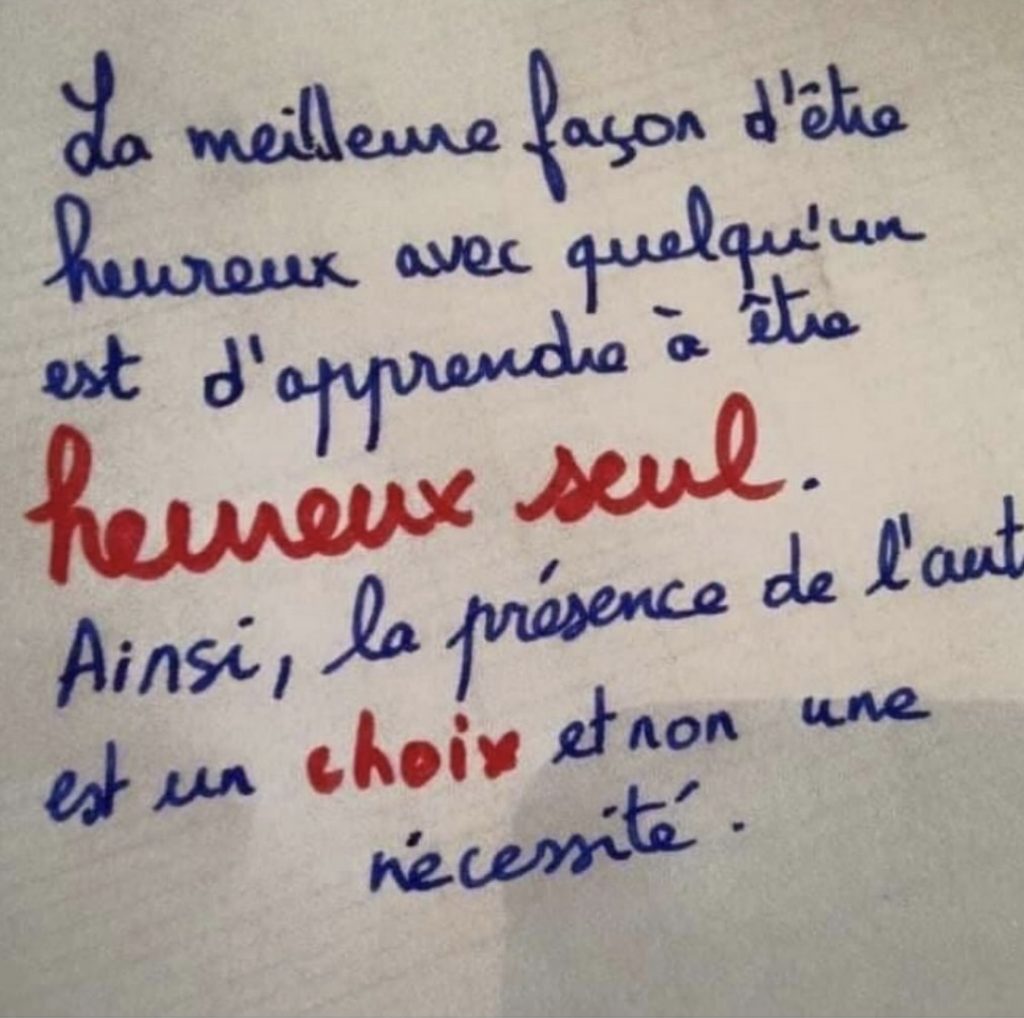 La meilleure façon d'être
heureux avec quelqu'un
est d'apprendre à être
heureux seul.
Ainsi, la présence de l'aut
est un choix et non une
nécessité.